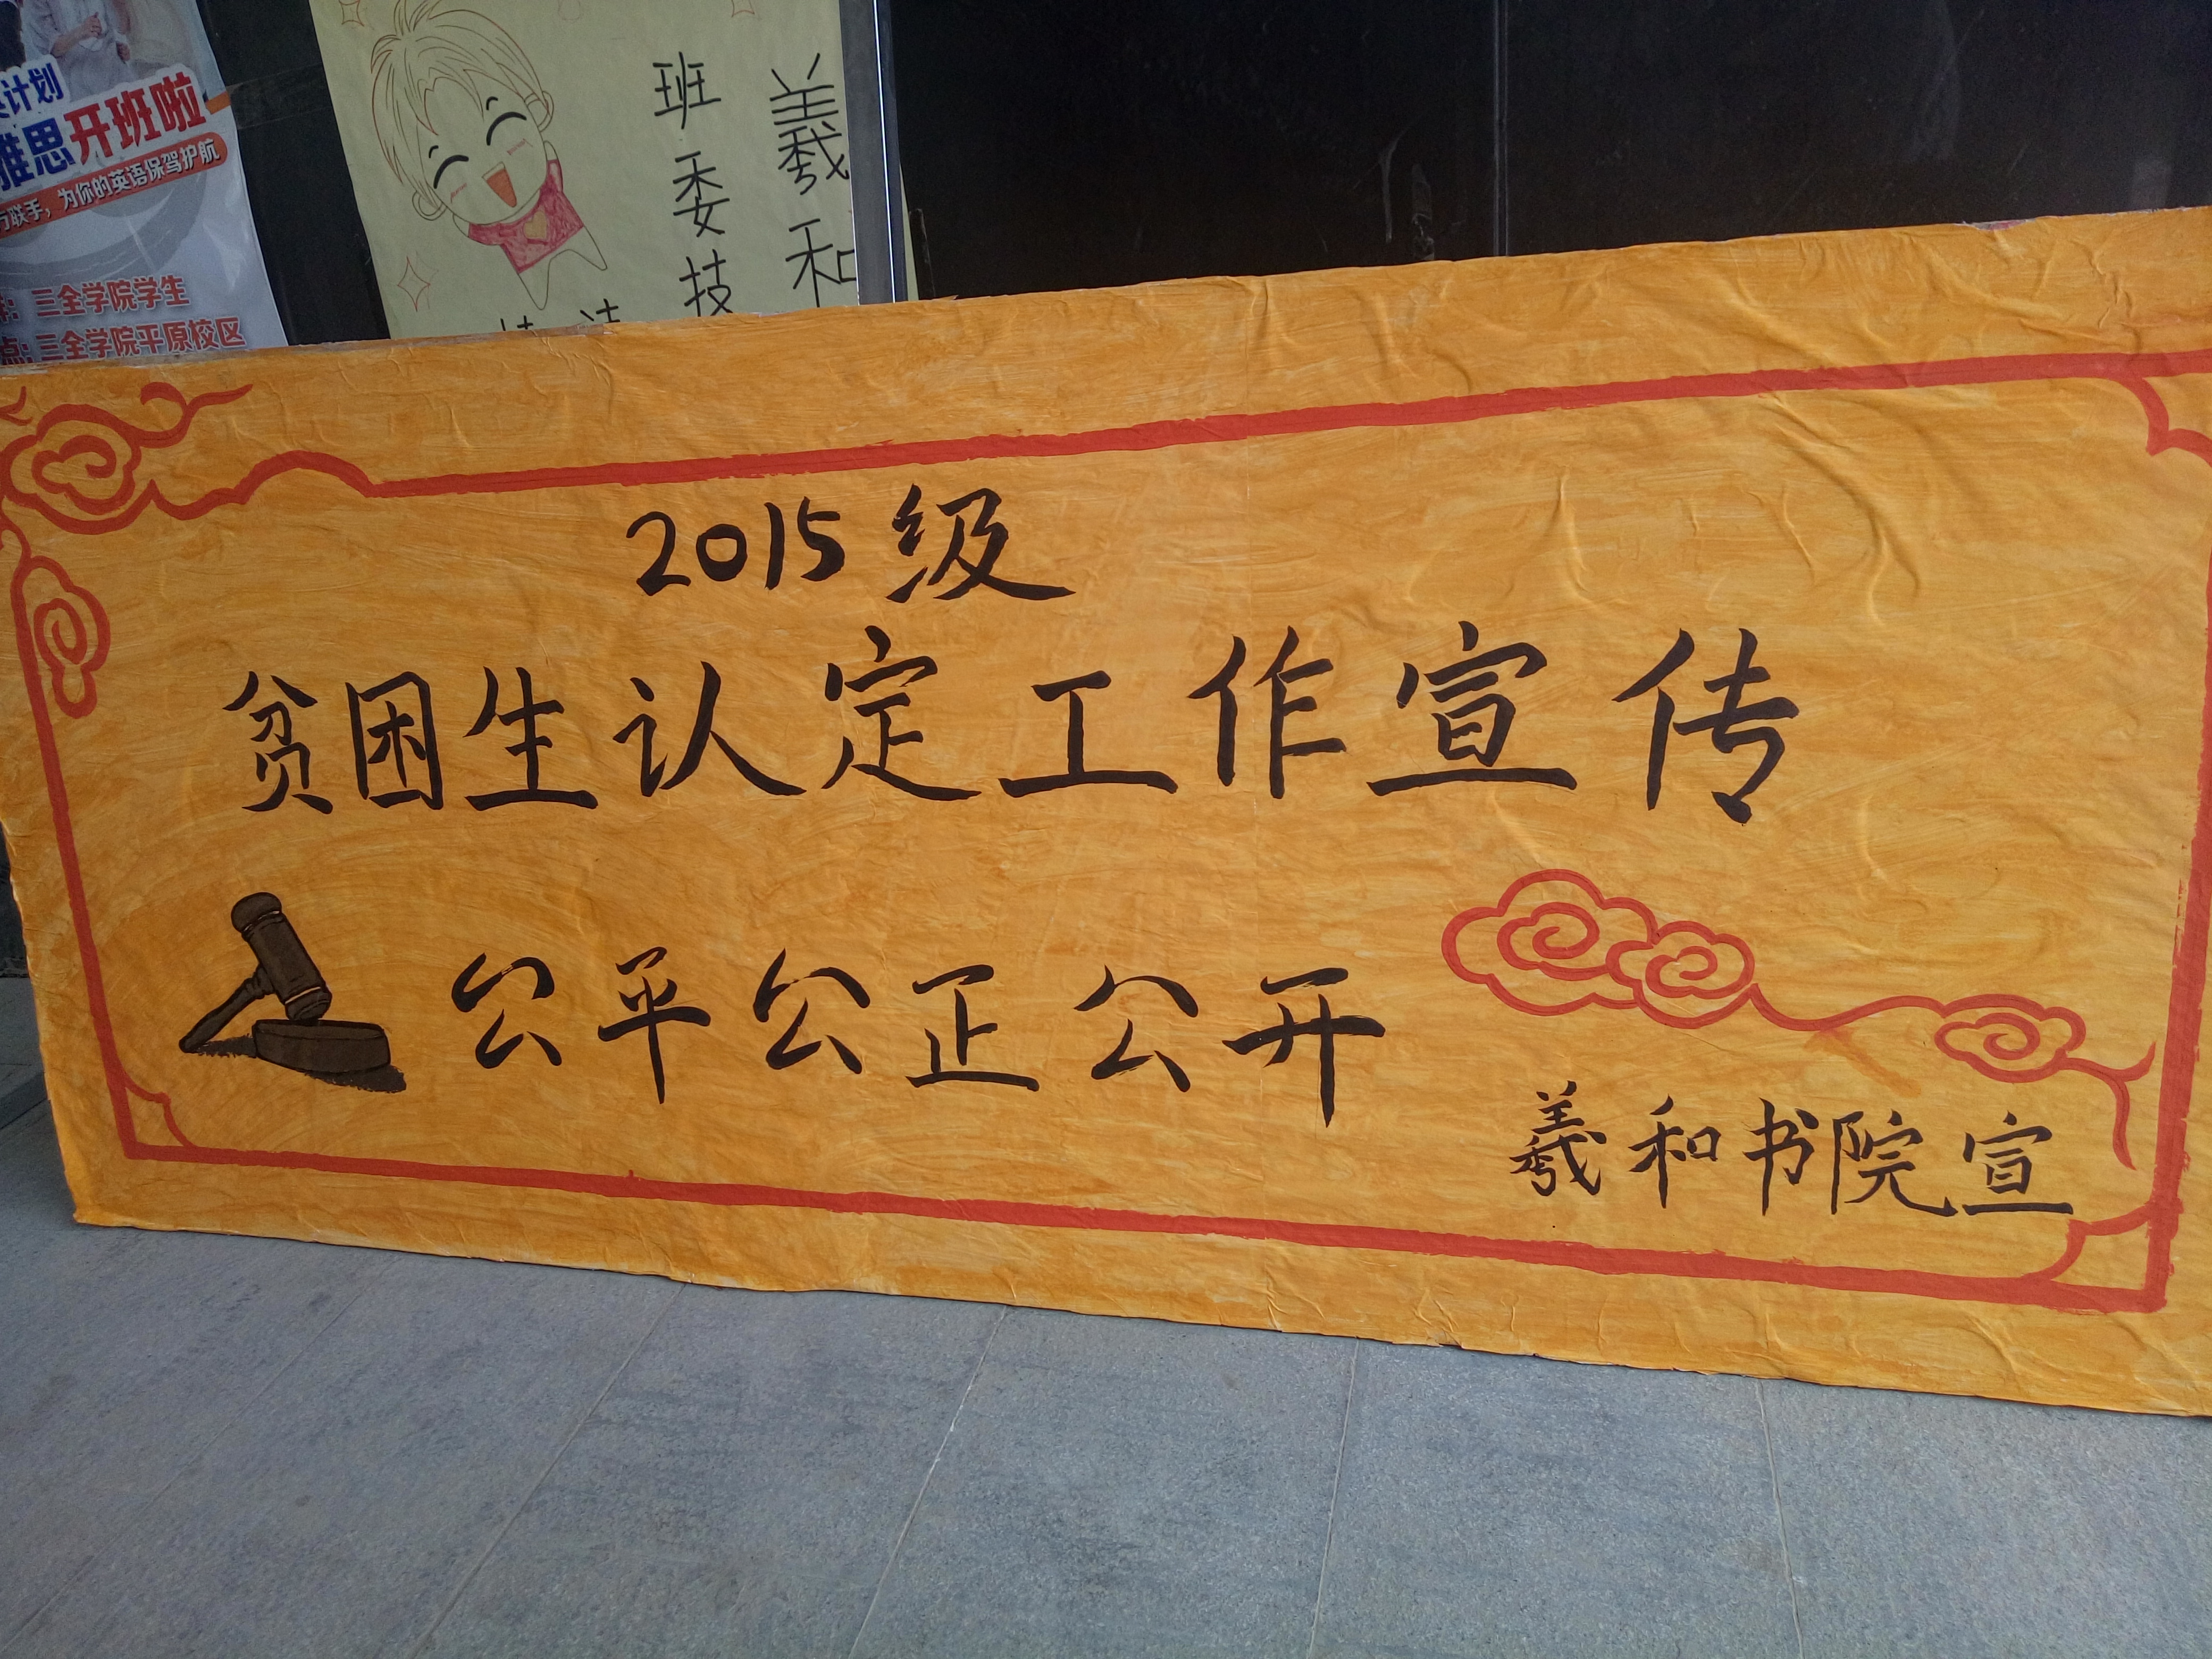 计划
雅思开班啦
联手，为你的英语保驾护航
三全学院学生
点：三全学院平原校区
羲和
班委技
2015级
贫困生认定工作宣传
公平公正公开
羲和书院宣